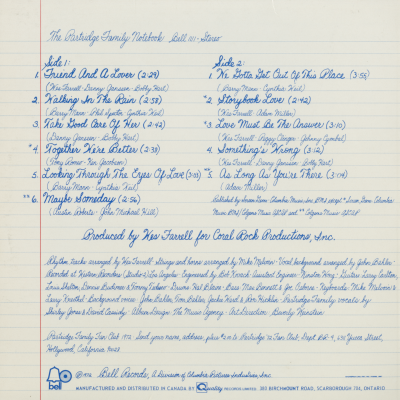 The Partridge Family Notebook Bell 1111 - Stereo
Side 1:
1. Friend And A Lover (2:29)
(Wes Farrell - Danny Janssen - Bobby Hart)
2. Walking In The Rain (2:58)
(Barry Mann - Phil Spector - Cynthia Weil)
3. Take Good Care Of Her (2:42)
(Danny Janssen - Bobby Hart)
*4. Together We're Better (2:38)
(Tony Romeo - Ken Jacobson)
5. Looking Through The Eyes Of Love (3:03)
(Barry Mann - Cynthia Weil)
**6. Maybe Someday (2:56)
(Austin Roberts - John Michael Hill)
Side 2:
1. We Gotta Get Out Of This Place (3:55)
(Barry Mann - Cynthia Weil)
*2. Storybook Love (2:42)
(Wes Farrell - Adam Miller)
*3. Love Must Be The Answer (3:10)
(Wes Farrell - Peggy Clinger - Johnny Cymbal)
4. Something's Wrong (3:12)
(Wes Farrell - Danny Janssen - Bobby Hart)
*5. As Long As You're There (3:04)
(Adam Miller)
Published by Screen Gems - Columbia Music Inc. BMI except
Produced by Wes Farrell for Coral Rock Productions, Inc.
Rhythm tracks arranged by Wes Farrell - Strings and horns arranged by Mike Melvoin - Vocal background arranged by John Bahler
Recorded at Western Recorders (Studio 2) Los Angeles - Engineered by Bob Kovach Assistant Engineer - Winston Wong - Guitars: Larry Carlton,
Louis Shelton, Dennis Budimir & Tommy Tedesco - Drums: Hal Blaine - Bass: Max Bennett & Joe Osborn - Keyboards: Mike Melvoin &
Larry Knechtel - Background voices: John Bahler, Tom Bahler, Jackie Ward & Ron Hicklin - Partridge Family vocals by:
Shirley Jones & David Cassidy - Album Design: The Music Agency - Art Direction: Beverly Weinstein
Partridge Family Fan Club 1972 - Send your name, address, plus to Partridge '72 Fan Club, Dept.
Hollywood, California 90028
bell
© 1972 Bell Records, A Division of Columbia Pictures Industries, Inc.
MANUFACTURED AND DISTRIBUTED IN CANADA BY Quality RECORDS LIMITED, 380 BIRCHMOUNT ROAD, SCARBOROUGH 704, ONTARIO